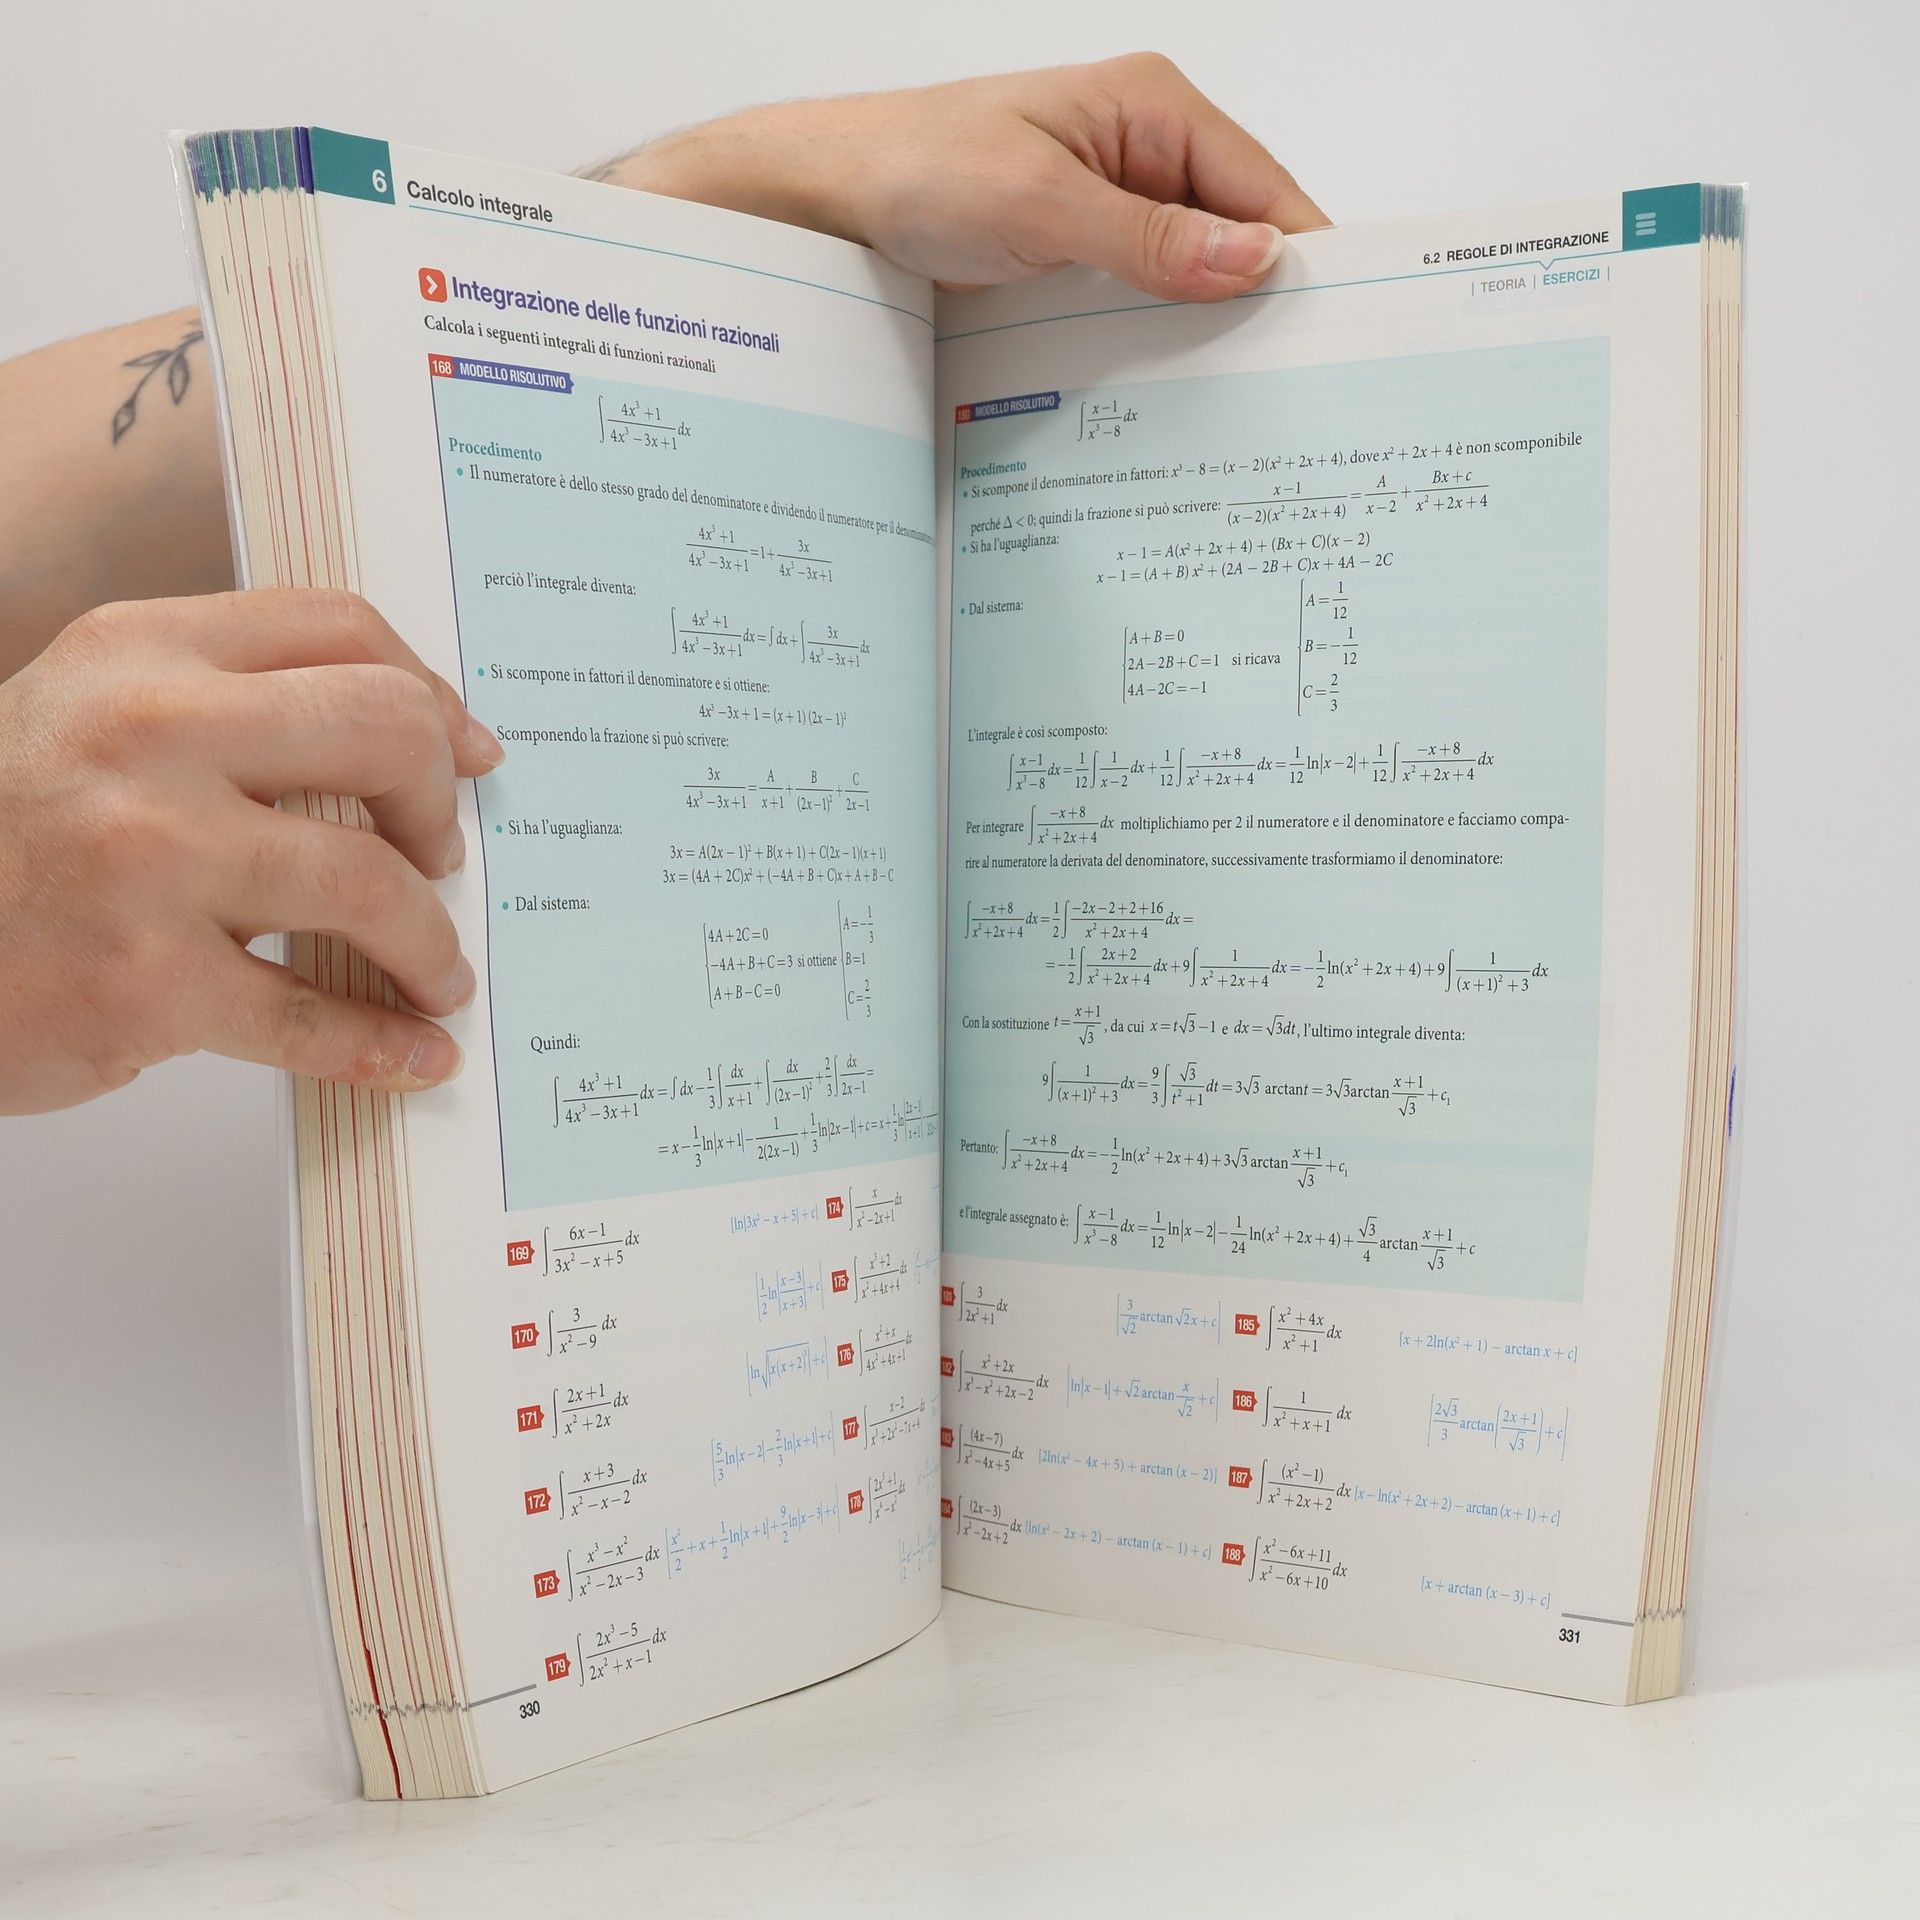 6 Calcolo integrale
Integrazione delle funzioni razionali
Calcola i seguenti integrali di funzioni razionali
168 MODELLO RISOLUTIVO
∫ (4x³+1)/(4x³−3x+1) dx
Procedimento
• Il numeratore è dello stesso grado del denominatore e dividendo il numeratore per il
(4x³+1)/(4x³−3x+1) = 1 + 3x/(4x³−3x+1)
perciò l'integrale diventa:
∫ (4x³+1)/(4x³−3x+1) dx = ∫ dx + ∫ 3x/(4x³−3x+1) dx
• Si scompone in fattori il denominatore e si ottiene:
4x³ −3x + 1 = (x + 1) (2x − 1)²
Scomponendo la frazione si può scrivere:
3x/(4x³−3x+1) = A/(x+1) + B/(2x−1)² + C/(2x−1)
• Si ha l'uguaglianza:
3x = A(2x − 1)² + B(x + 1) + C(2x − 1)(x + 1)
3x = (4A + 2C)x² + (−4A + B + C)x + A + B − C
• Dal sistema:
4A+2C=0 A=−1/3
−4A+B+C=3 si ottiene B=1
A+B−C=0 C=2/3
Quindi:
∫ (4x³+1)/(4x³−3x+1) dx = ∫ dx − 1/3 ∫ dx/(x+1) + ∫ dx/(2x−1)² + 2/3 ∫ dx/(2x−1) =
= x − 1/3 ln|x+1| − 1/(2(2x−1)) + 1/3 ln|2x−1| + c = x + 1/3 ln|(2x−1)/(x+1)|
169 ∫ (6x−1)/(3x²−x+5) dx [ln|3x² − x + 5| + c] 174 ∫ x/(x²−2x+1) dx
170 ∫ 3/(x²−9) dx [1/2 ln|(x−3)/(x+3)| + c] 175 ∫ (x³+2)/(x²+4x+4) dx
171 ∫ (2x+1)/(x²+2x) dx 176 ∫ (x²+x)/(4x²+4x+1) dx
172 ∫ (x+3)/(x²−x−2) dx [5/3 ln|x−2| − 2/3 ln|x+1| + c] 177 ∫ (x−2)/(x³+2x²−7x+4) dx
173 ∫ (x³−x²)/(x²−2x−3) dx [x²/2 + x + 1/2 ln|x+1| + 9/2 ln|x−3| + c] 178
179 ∫ (2x³−5)/(2x²+x−1) dx
330
6.2 REGOLE DI INTEGRAZIONE
| TEORIA | ESERCIZI |
180 MODELLO RISOLUTIVO
∫ (x−1)/(x³−8) dx
Procedimento
• Si scompone il denominatore in fattori: x³ − 8 = (x − 2)(x² + 2x + 4), dove x² + 2x + 4 è non scomponibile
perché Δ < 0; quindi la frazione si può scrivere: (x−1)/((x−2)(x²+2x+4)) = A/(x−2) + (Bx+c)/(x²+2x+4)
• Si ha l'uguaglianza:
x − 1 = A(x² + 2x + 4) + (Bx + C)(x − 2)
x − 1 = (A + B) x² + (2A − 2B + C)x + 4A − 2C
• Dal sistema:
A+B=0 A=1/12
2A−2B+C=1 si ricava B=−1/12
4A−2C=−1 C=2/3
L'integrale è così scomposto:
∫ (x−1)/(x³−8) dx = 1/12 ∫ 1/(x−2) dx + 1/12 ∫ (−x+8)/(x²+2x+4) dx = 1/12 ln|x−2| + 1/12 ∫ (−x+8)/(x²+2x+4) dx
Per integrare ∫ (−x+8)/(x²+2x+4) dx moltiplichiamo per 2 il numeratore e il denominatore e facciamo compa-
rire al numeratore la derivata del denominatore, successivamente trasformiamo il denominatore:
∫ (−x+8)/(x²+2x+4) dx = 1/2 ∫ (−2x−2+2+16)/(x²+2x+4) dx =
= −1/2 ∫ (2x+2)/(x²+2x+4) dx + 9 ∫ 1/(x²+2x+4) dx = −1/2 ln(x²+2x+4) + 9 ∫ 1/((x+1)²+3) dx
Con la sostituzione t = (x+1)/√3, da cui x = t√3−1 e dx = √3dt, l'ultimo integrale diventa:
9 ∫ 1/((x+1)²+3) dx = 9/3 ∫ √3/(t²+1) dt = 3√3 arctant = 3√3arctan (x+1)/√3 + c₁
Pertanto: ∫ (−x+8)/(x²+2x+4) dx = −1/2 ln(x²+2x+4) + 3√3 arctan (x+1)/√3 + c₁
e l'integrale assegnato è: ∫ (x−1)/(x³−8) dx = 1/12 ln|x−2| − 1/24 ln(x²+2x+4) + √3/4 arctan (x+1)/√3 + c
181 ∫ 3/(2x²+1) dx [3/√2 arctan √2x + c] 185 ∫ (x²+4x)/(x²+1) dx [x + 2ln(x² + 1) − arctan x + c]
182 ∫ (x²+2x)/(x³−x²+2x−2) dx [ln|x−1| + √2 arctan x/√2 + c] 186 ∫ 1/(x²+x+1) dx [2√3/3 arctan((2x+1)/√3) + c]
183 ∫ (4x−7)/(x²−4x+5) dx [2ln(x² − 4x + 5) + arctan (x − 2)] 187 ∫ (x²−1)/(x²+2x+2) dx [x − ln(x² + 2x + 2) − arctan (x + 1) + c]
184 ∫ (2x−3)/(x²−2x+2) dx [ln(x² − 2x + 2) − arctan (x − 1) + c] 188 ∫ (x²−6x+11)/(x²−6x+10) dx [x + arctan (x − 3) + c]
331